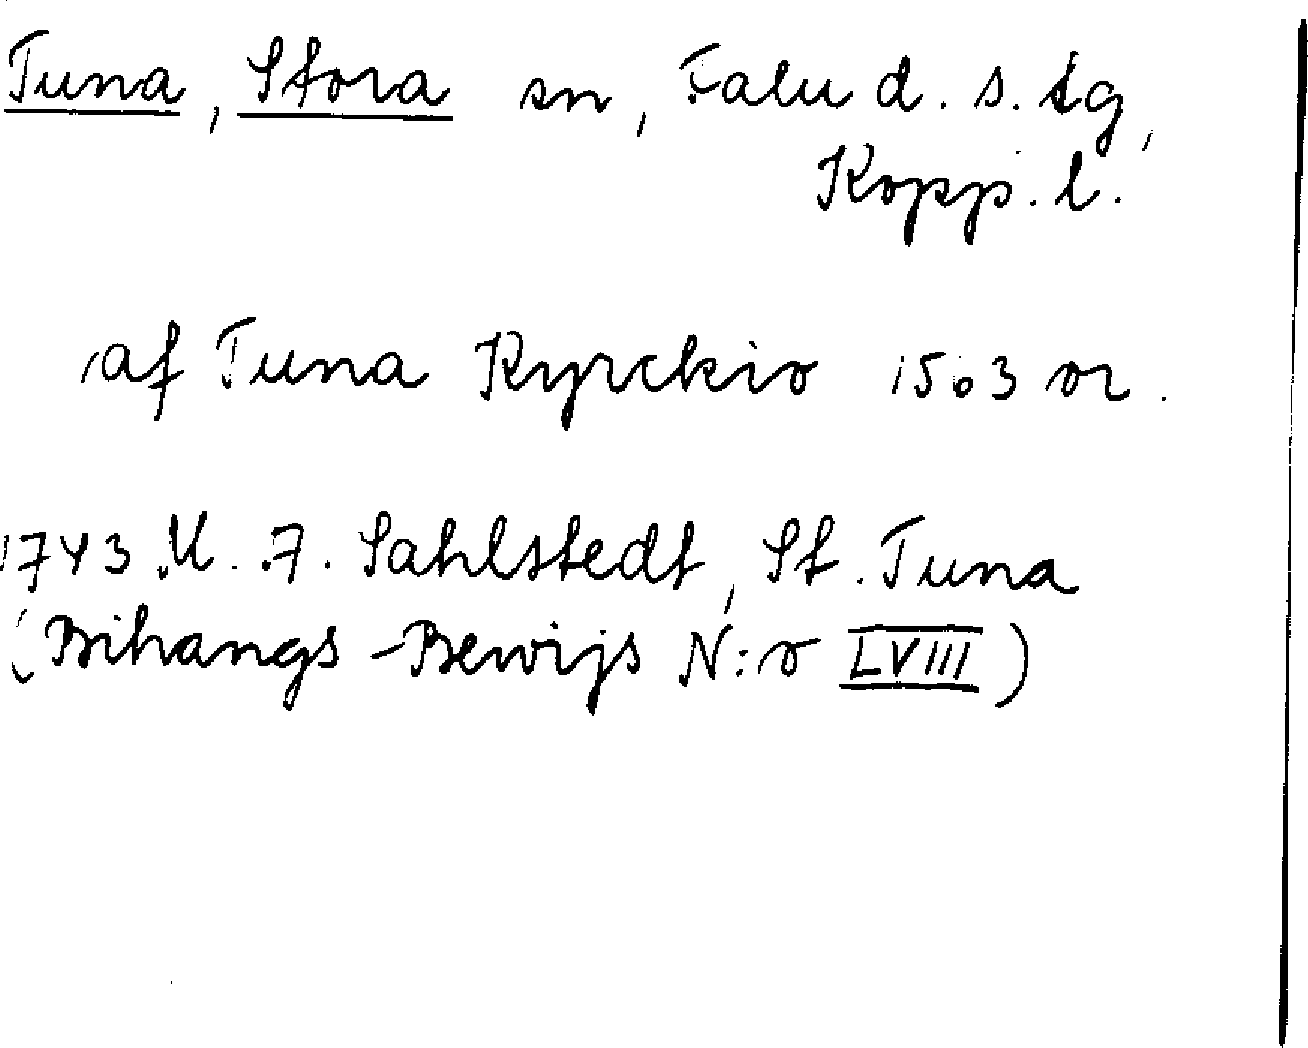 Tuna, Stora sn, Falu d. s. tg,
Kopp. l.
af Tuna Kyrckio 1503 or.
1743 M. A. Sahlstedt, St. Tuna
(Bihangs-Bewijs N:o LVIII)